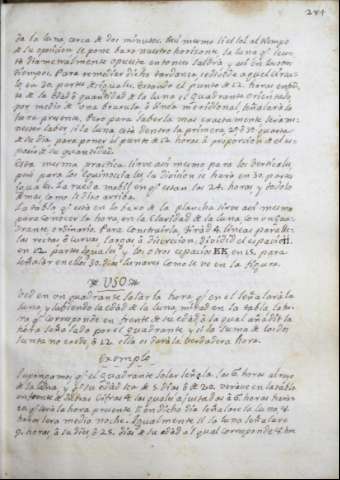 281
de la luna cerca de dos minutos. Assi mismo si el sol al tiempo
de su oposicion se pone baxo nuestro horizonte, la luna qe
diametralmente opuesta entonces saldria y assi en los otros
tiempos. Para remediar dicha tardanza se divide aquel
lo en 30 partes iguales. Estando el punto de 12. horas
de la edad o quantidad de la luna el Quadrante
por medio de una o linea meridional señalarà la
hora presente. Pero para saberla mas exactamente serà me-
nester saber si la luna està dentro la primera 2ª 3ª 4ª quarta
de su dia para poner el punto de 12 horas à proporcion de el
pacio de su quantidad.
Esta misma practica sirve assi mismo para los verticales
pero para los Equinoctiales la division se harà en 30. partes
iguales. La rueda mobil en qe estan las 24. horas y todo lo
demas como se dixo arriba.
La tabla qe està en lo baxo de la plancha sirve assi mismo
para conocer la hora en la claridad de la luna con un qua-
drante ordinario. Para construirla, tirad 4. lineas parale-
las rectas ò curvas largas à discrecion, dividid el espacio II.
en 12. partes iguales y los otros espacios KK en 15. para
señalar en ellos 30. dias lunares como se ve en la figura.
USO
Ved en un quadrante solar la hora qe en el señalarà la
luna, y sabiendo la edad de la luna, mirad en la tabla la hora
qe corresponde en frente de su edad, à la qual añadid la
hora señalada por el quadrante y si la suma de los dos
junta no excede à 12. ella os darà la verdadera hora.
Exemplo
Supongamos qe el quadrante solar señala las 6. horas al rayo
de la luna, y qe su edad sea de 5. dias ò de 20. verèse en la tabla
en frente de dichas cifras 4. las quales ajustadas à 6. horas haràn
10. qe serà la hora presente. Si en dicho dia señalare la luna 8.
horas serà media noche. Igualmente si la luna señalare
9. horas à 10 dias, ò 25. dias de su edad al qual corresponde 8. ho